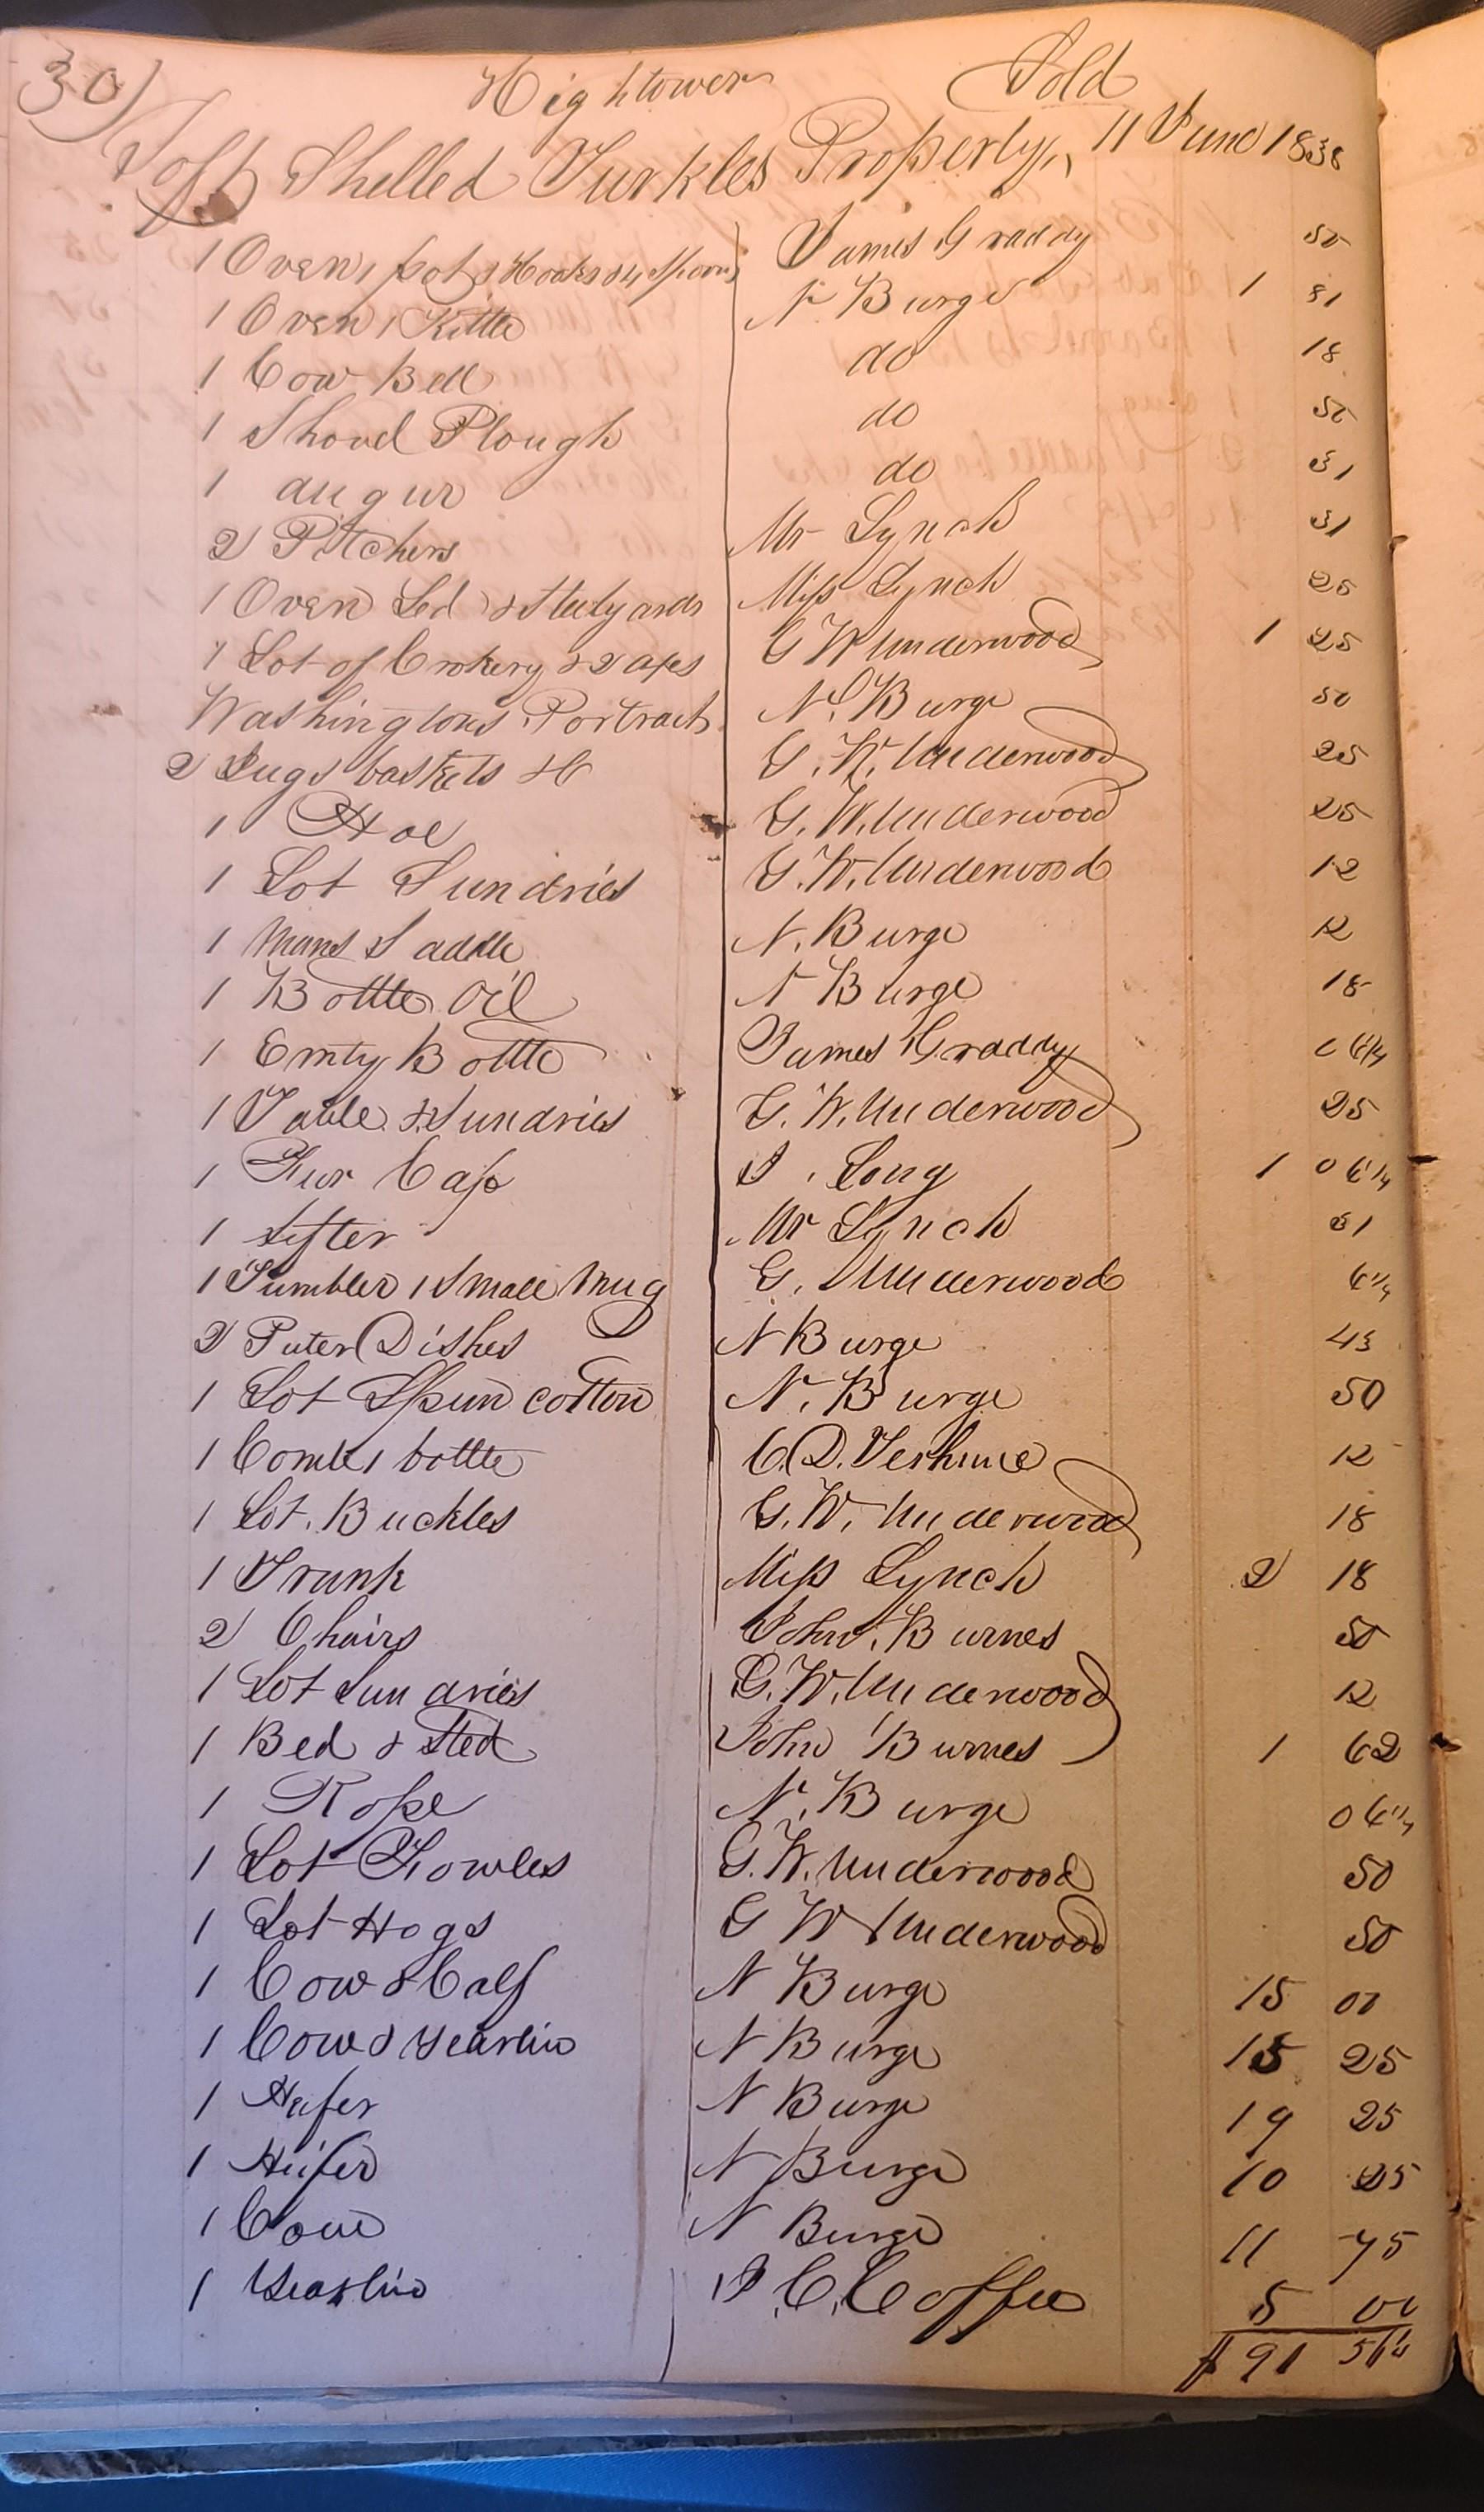 30) Hightower Sold
Soft Shelled Turkles Property, 11 June 1838
1 Oven 1 pot & Hooks & 4 Spoons James Graddy 50
1 Oven 1 Kittle N Burge 1 81
1 Cow Bell do 18
1 Shovel Plough do 50
1 augur do 31
2 Pitchers Mr Lynch 31
1 Oven Led & Steelyards Miss Lynch 25
1 Lot of Crokery & 2 axes G W Underwood 1 25
Washingtons Portrait N. Burge 50
2 Jugs baskets &c G. W. Underwood 25
1 Hoe G. W. Underwood 25
1 Lot Sundries G. W. Underwood 12
1 Mans Saddle N. Burge 12
1 Bottle Oil N Burge 18
1 Emty Bottle James Graddy 0 6 1/4
1 Table & Sundries G. W. Underwood 25
1 Fur Cap J. Long 1 0 6 1/4
1 Sifter Mr Lynch 31
1 Tumbler 1 Small Mug G. Underwood 6 1/4
2 Puter Dishes N Burge 43
1 Lot Spun cotton N. Burge 50
1 Comb 1 bottle C. D. Terhune 12
1 Lot. Buckles G. W. Underwood 18
1 Trunk Miss Lynch 2 18
2 Chairs John Burnes 50
1 Lot Sundries G. W. Underwood 12
1 Bed & Sted John Burnes 1 62
1 Rope N. Burge 0 6 1/4
1 Lot Fowles G. W. Underwood 50
1 Lot Hogs G W Underwood 50
1 Cow & Calf N Burge 15 00
1 Cow & Yearlin N Burge 15 25
1 Heifer N Burge 19 25
1 Heifer N Burge 10 25
1 Cow N Burge 11 75
1 Yearlin J. C. Coffee 5 00
$ 91